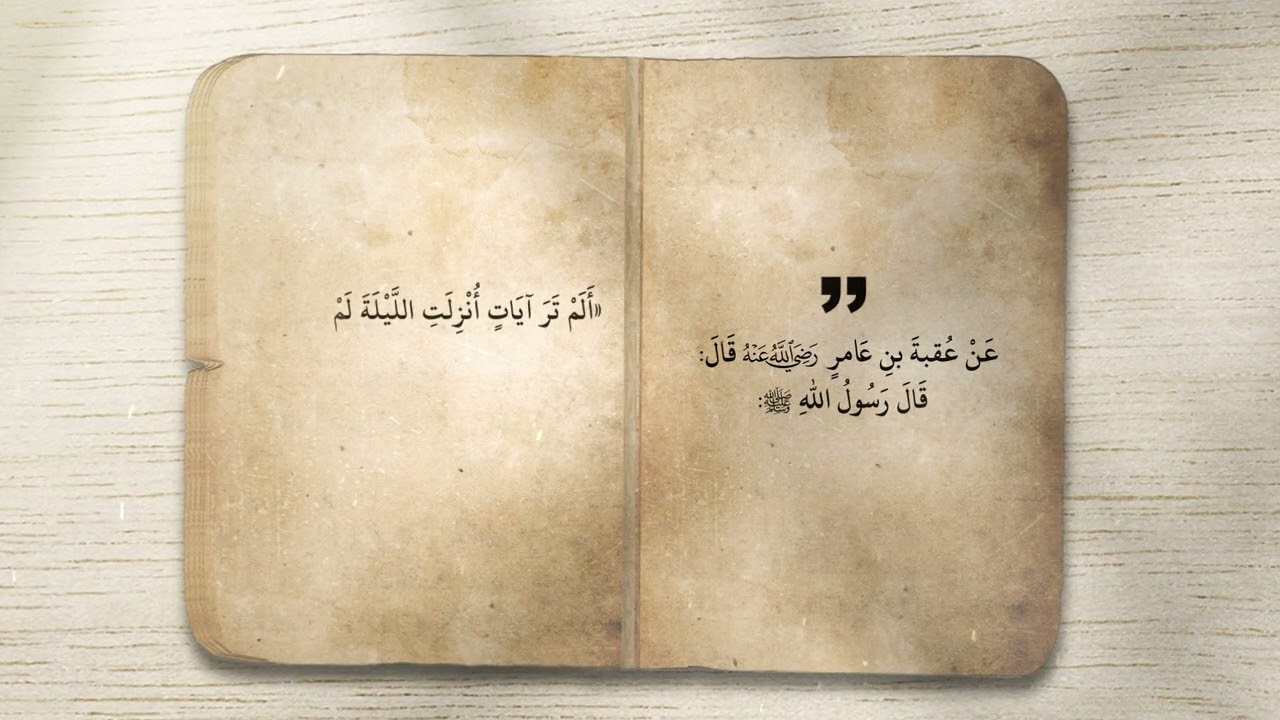 عَنْ عُقبةَ بنِ عَامرٍ رَضِيَ اللَّهُ عَنْهُ قَالَ:
قَالَ رَسُولُ اللهِ ﷺ:
«أَلَمْ تَرَ آيَاتٍ أُنْزِلَتِ اللَّيْلَةَ لَمْ